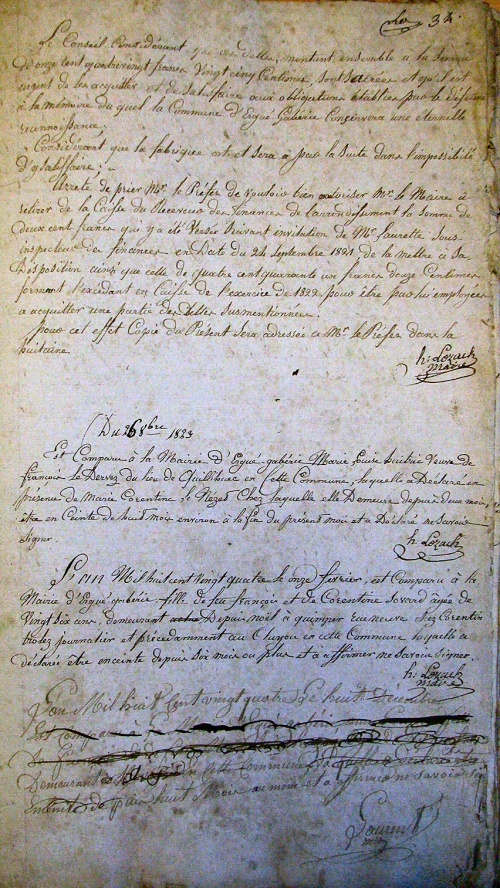 34.
Le Conseil Considérant que ces dettes, montant ensemble à la Somme
d'onze cent quatrevingt francs Vingt cinq Centimes sont sacrées et qu'il est
urgent de les acquitter et de satisfaire aux obligations établies par le défunt
à la mémoire du quel la Commune d'Ergué-Gabéric conservera une éternelle
reconnaissance.
Considérant que la fabrique est et sera à par la Suite dans l'impossibilité
d'y satisfaire,
Arrête de prier Mr. le Préfet de vouloir bien autoriser Mr. le Maire à
retirer de la Caisse du Receveur des finances de l'arrondissement la Somme de
deux cent francs qui y a été Versée Suivant invitation de Mr. Laurette Sous
inspecteur des finances en Date du 24 Septembre 1821 de la mettre à Sa
Disposition ainsi que celle de quatre cent quarante un francs Douze Centimes
formant l'excédant en Caisse de l'exercice de 1822 pour être par lui employées
a acquitter une partie des Dettes Susmentionnées.
pour cet effet Copie du Présent Sera adressée à Mr. le Préfet dans la
huitaine
h: Lozach
Maire
Du 26 8bre 1823
Est Comparu à la Mairie d'Ergué-gabéric Marie Louise Veuve de
françois Le Dervez du lieu de Quillihuec en Cette Commune, laquelle a Déclaré en
présence de Marie Corentine Le Nezet Chez laquelle elle Demeure depuis deux mois
être en Ceinte de huit mois environ à la fin du présent mois et a Déclaré ne Savoir
Signer
h: Lozach
L'an Mil huit cent vingt quatre le onze fevrier, est Comparu à la
Mairie d'Ergué-gabéric fille de feu françois et de Corentine agée de
Vingt Six ans, demeurant Depuis noël à quimper rue neuve chez Corentin
journalier et précédamment au Cluyou en cette Commune laquelle a
déclaré être enceinte depuis Six mois ou plus et a affirmer ne savoir Signer
h: Lozach
Maire
L'an Mil huit Cent vingt quatre Le huit Decembre
Est comparu à
Demeurant en cette Commune
Enceinte de puis huit Mois au moins et a affirmé ne Savoir
Laurent